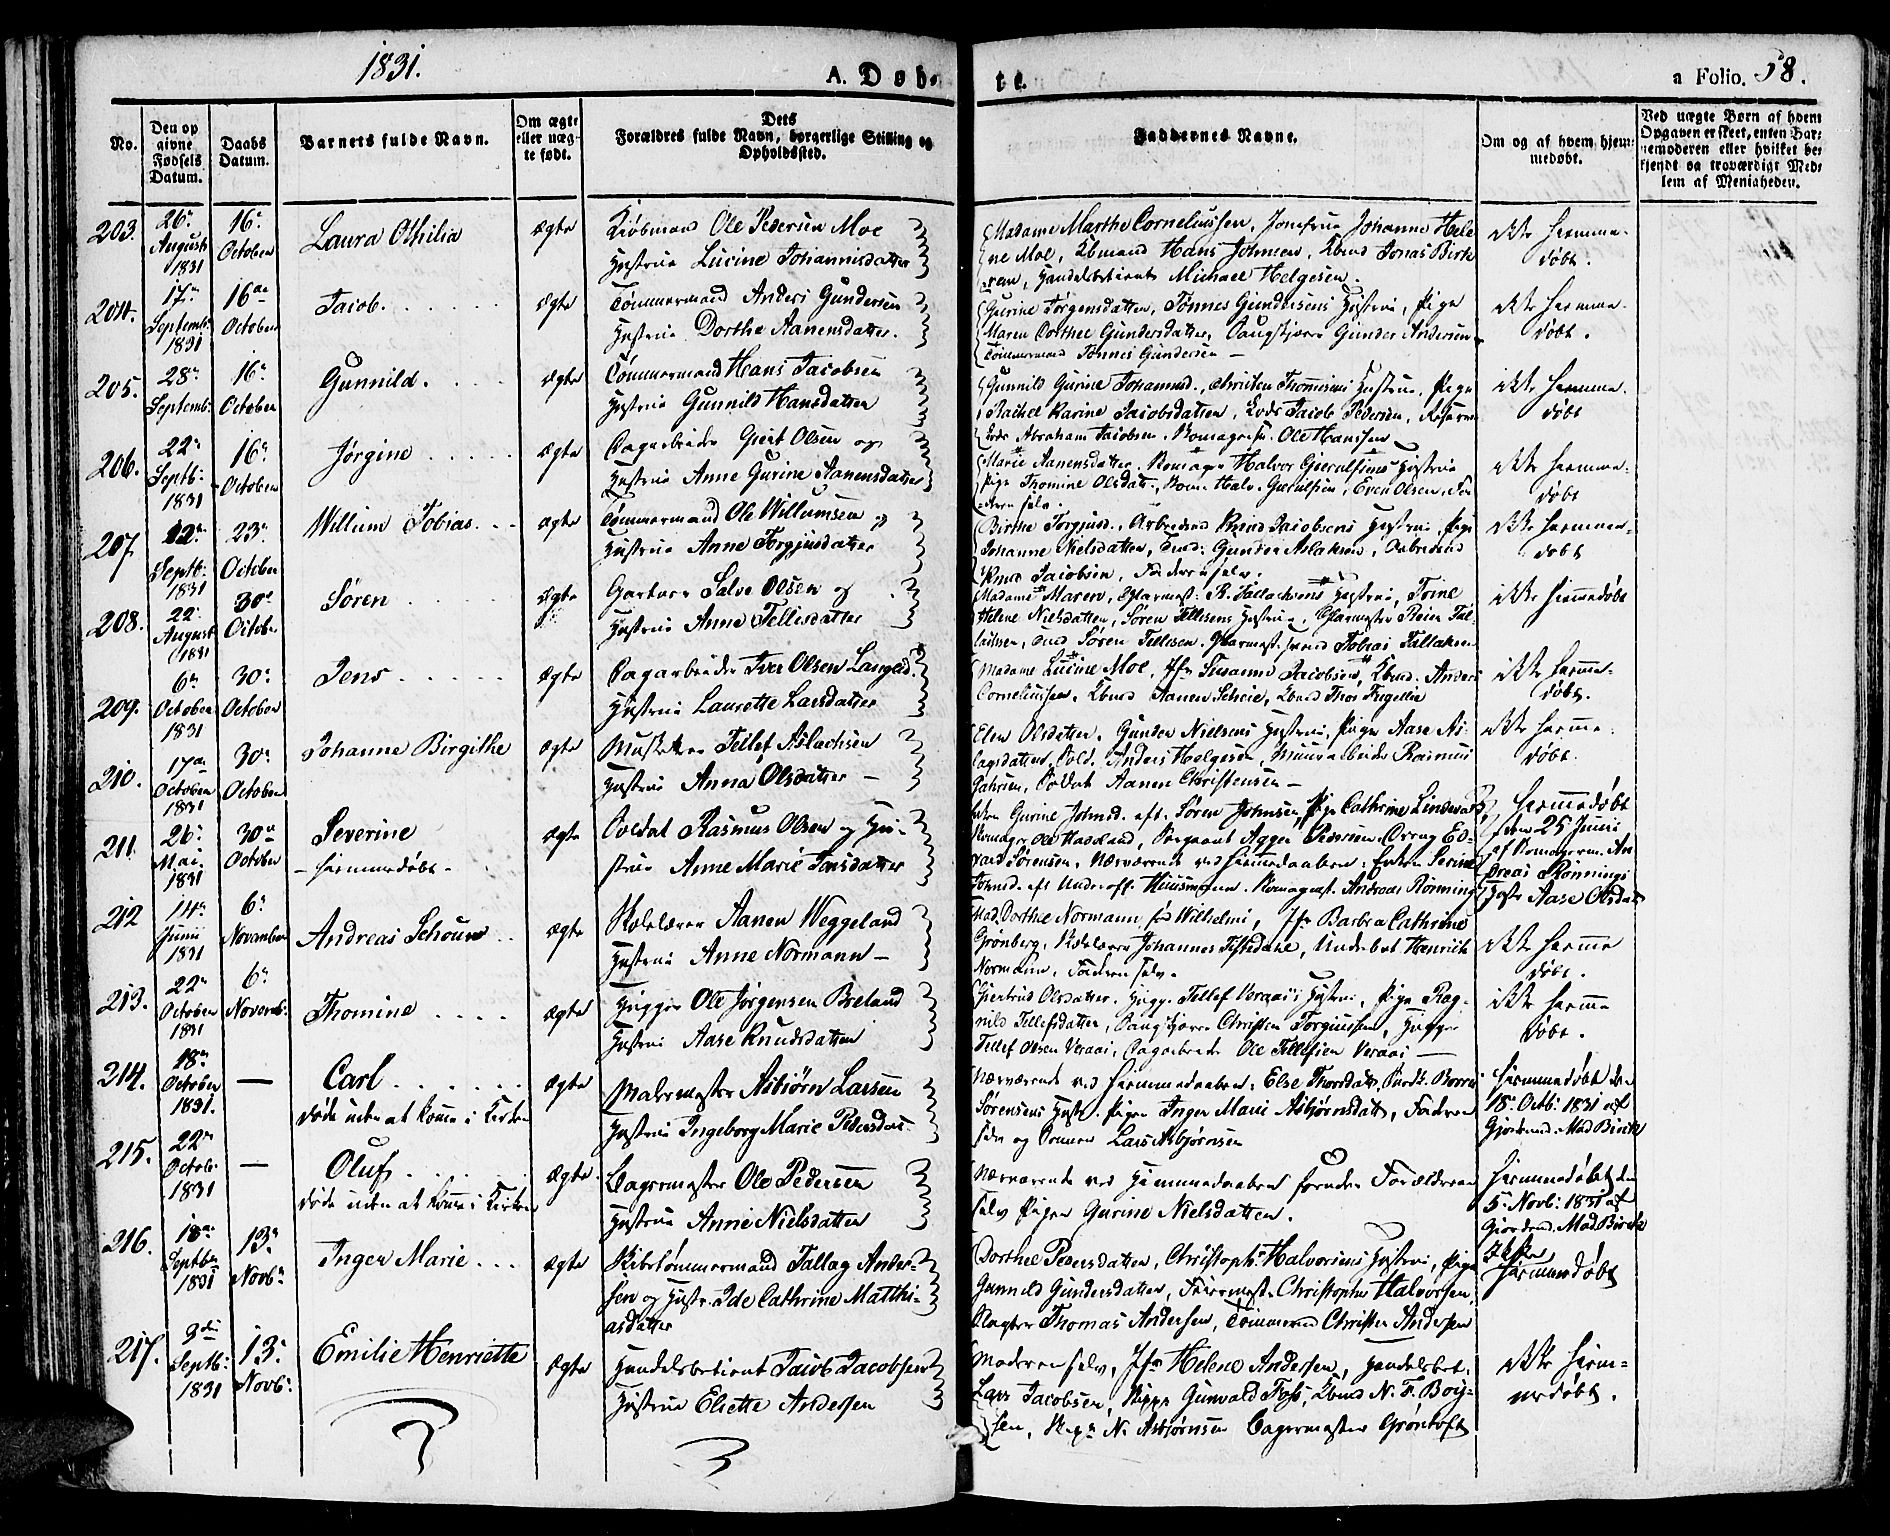 1831.
A. Døb-
te.
a Folio. 58.
No.
Den op
givne
Fødsels
Datum.
Daabs
Datum.
Barnets fulde Navn.
Om ægte
eller uæg-
te født.
Dets
Forældres fulde Navn, borgerlige Stilling og
Opholdssted.
Faddernes Navne.
Om og af hvem hjem-
medøbt.
Ved uægte Børn af hvem
Opgaven er skeet, enten Bar-
nemoderen eller hvilket be-
kjendt og troværdigt Med-
lem af Menigheden.
203.
26n
August
1831
16n
October
Laura Othilia
ægte
Kiøbmand Ole Pedersen Moe
Hustrue Lucine Johannisdatter
Madame Marthe Corneliussen, Jomfrue Johanne Hele
ne Moe, Kbmand Hans Johnsen, Kbmd Jonas Birke
Handelsbetient Michael Helgesen.
ikke hiemme-
døbt.
204.
17n
Septemb:
1831
16de
October
Jacob.
ægte
Tømmermand Anders Gundersen
Hustrue Dorthe Aanensdatter.
Gurine Jørgensdatter, Tønnes Gundersens Hustrue, Pige
Maren Dorthea Gundersdatter, Gunder Andersen
Tømmermand Tønnes Gundersen
ikke hiemme-
døbt.
205.
28n
Septemb:
16n
October
Gunnild.
ægte
Tømmermand Hans Jacobsen
Hustrue Gunnild Hansdatter
Gunnild Gurine Johannesd., Christen Thomesens Hustrue, Pige
Rachel Karine Jacobsdatter, Lods Jacob Pedersen,
Lods Abraham Jacobsen, Ole Hanssen
ikke hiemme-
døbt
206.
22n
Septb:
1831
16n
October
Jørgine
ægte
Dagarbeider Giert Olsen og
Hustrue Anne Gurine Aanensdatter
Marie Aanensdatter, Halvor Gierulfsens Hustrue
Pige Thomine Olsdatt., Halv. Gierulfsen, Even Olsen, Fa-
deren selv.
ikke hiemme-
døbt
207
12n
Septb:
1831
23n
October
Willum Tobias.
ægte
Tømmermand Ole Willumsen og
Hustrue Anne Torgiusdatter
Birthe Torgiusd., Knud Jacobsens Hustrue, Pige
Johanne Nielsdatter, Gunder Aslaksen,
Knud Jacobsen, Faderen selv.
ikke hiemme-
døbt
208.
22.
August
1831
30n
October
Søren
ægte
Gartner Salve Olsen og
Hustrue Anne Tellisdatter
Madame Maren, Glarmest: R. Tallachsens Hustrue, Trine
Helene Nielsdatter, Søren Tellisens Hustrue, Glarmester Reier Tal-
lachsen, Søren Tellisen, Glarmest. Tobias Tallaksen
ikke hiemmedøbt
209.
6n
October
1831
30n
October
Jens
ægte
Dagarbeider Iver Olsen Langed.
Hustrue Laurette Larsdatter
Madame Lucine Moe, Jfr Susanne Jacobsen, Kbmd. Anders
Corneliussen, Kbmd Aanen Scheie, Kbmd Thor Fugellie
ikke hiemme-
døbt.
210.
17de
October
1831
30n
October
Johanne Birgithe
ægte
Musketeer Tellef Aslachsen
Hustrue Anna Olsdatter
Elen Olsdatter, Gunder Nielsens Hustrue, Pige Aase As-
lagsdatter, Sold. Anders Helgesen, Muurarbeider Rasmus
Soldat Aanen Christensen
ikke hiemme-
døbt.
211
26n
Mai
1831
30n
October
Severine
- hiemmedøbt -
ægte
Soldat Rasmus Olsen og Hu-
strue Anne Marie Jonsdatter
Enken Gurine Johnsd. eft. Søren Johnsen, Pige Cathrine
Ole Haseland, Sergeant Agger Pedersen, Dreng Ed-
vard Sørensen, Nærværende ved hiemmedaaben: Enken Serine
Johnsd. eft Underoff. Huusmann. Andreas Rønning
hiemmedøbt
den 25 Junii
af An-
dreas Rønnings
Hustr Aase Olsdat
212
14n
Junii
1831
6n
November
Andreas Schouw
ægte
Skolelærer Aanen Weggeland
Hustrue Anne Normann
Mad. Dorthe Normann, fød Wilhelmi, Jfr Barbra Cathrine
Grønberg, Skolelærer Johannes Henrich
Normann, Faderen selv.
ikke hiemme
døbt.
213.
22n
October
1831
6n
Novemb:
Thomine
ægte
Hugger Ole Jørgensen Breland
Hustrue Aase Knudsdatter
Giertrud Olsdatter, Hugg. Tellef Veraais Hustrue, Pige Rag-
nild Tellefsdatter, Christen Torgiussen, Hugger
Tellef Olsen Veraai, Dagarbeider Ole Tellefsen Veraai
ikke hiemme
døbt.
214.
18n
October
1831.
Carl
døde uden at komme i Kirken
ægte
Malermester Asbiørn Larsen
Hustrue Ingeborg Marie Pedersdat
Nærværende ved hiemmedaaben: Else Thorsdatt,
Sørensens Hustr. Pigen Inger Marie Asbjørnsdatt, Faderen
selv og Lars Asbjørnsen
hiemmedøbt den
18n Octb: 1831 af
Giordemd. Mad Birch
215.
22n
Octob:
1831
Oluf
døde uden at komme i Kirken
ægte
Bagermester Ole Pedersen
Hustrue Anne Nielsdatter
Nærværende ved hiemmedaaben foruden Forældrene
selv Pigen Gurine Nielsdatter.
hiemmedøbt den
5n Novb: 1831 af
Giordemd. Mad Birch
216.
18de
Septbr
1831
13n
Novb:
Inger Marie
ægte
Skibstømmermand Tallag Ander-
sen og Hustr. Ide Cathrine Matthi-
asdatter
Dorthe Pedersdatter, Christoph: Halvorsens Hustrue, Pige
Gunnild Gundersdatter, Christopher Halvorsen,
Thomas Andersen, Tømmermd Christen Andersen
Ikke
hiemmedøbt
217.
3die
Septb:
1831
13n
Novb:
Emilie Henriette
ægte
Handelsbetient Jacob Jacobsen
Hustrue Elisette Andersen
Moderen selv, Jfr Helene Andersen, Handelsbet:
Lars Jacobsen, Skipp. Gunvald Foss, Kbmd N. F. Boy-
sen, N. Asbjørnsen Bagermester Grøntoft
ikke hiem-
medøbt.